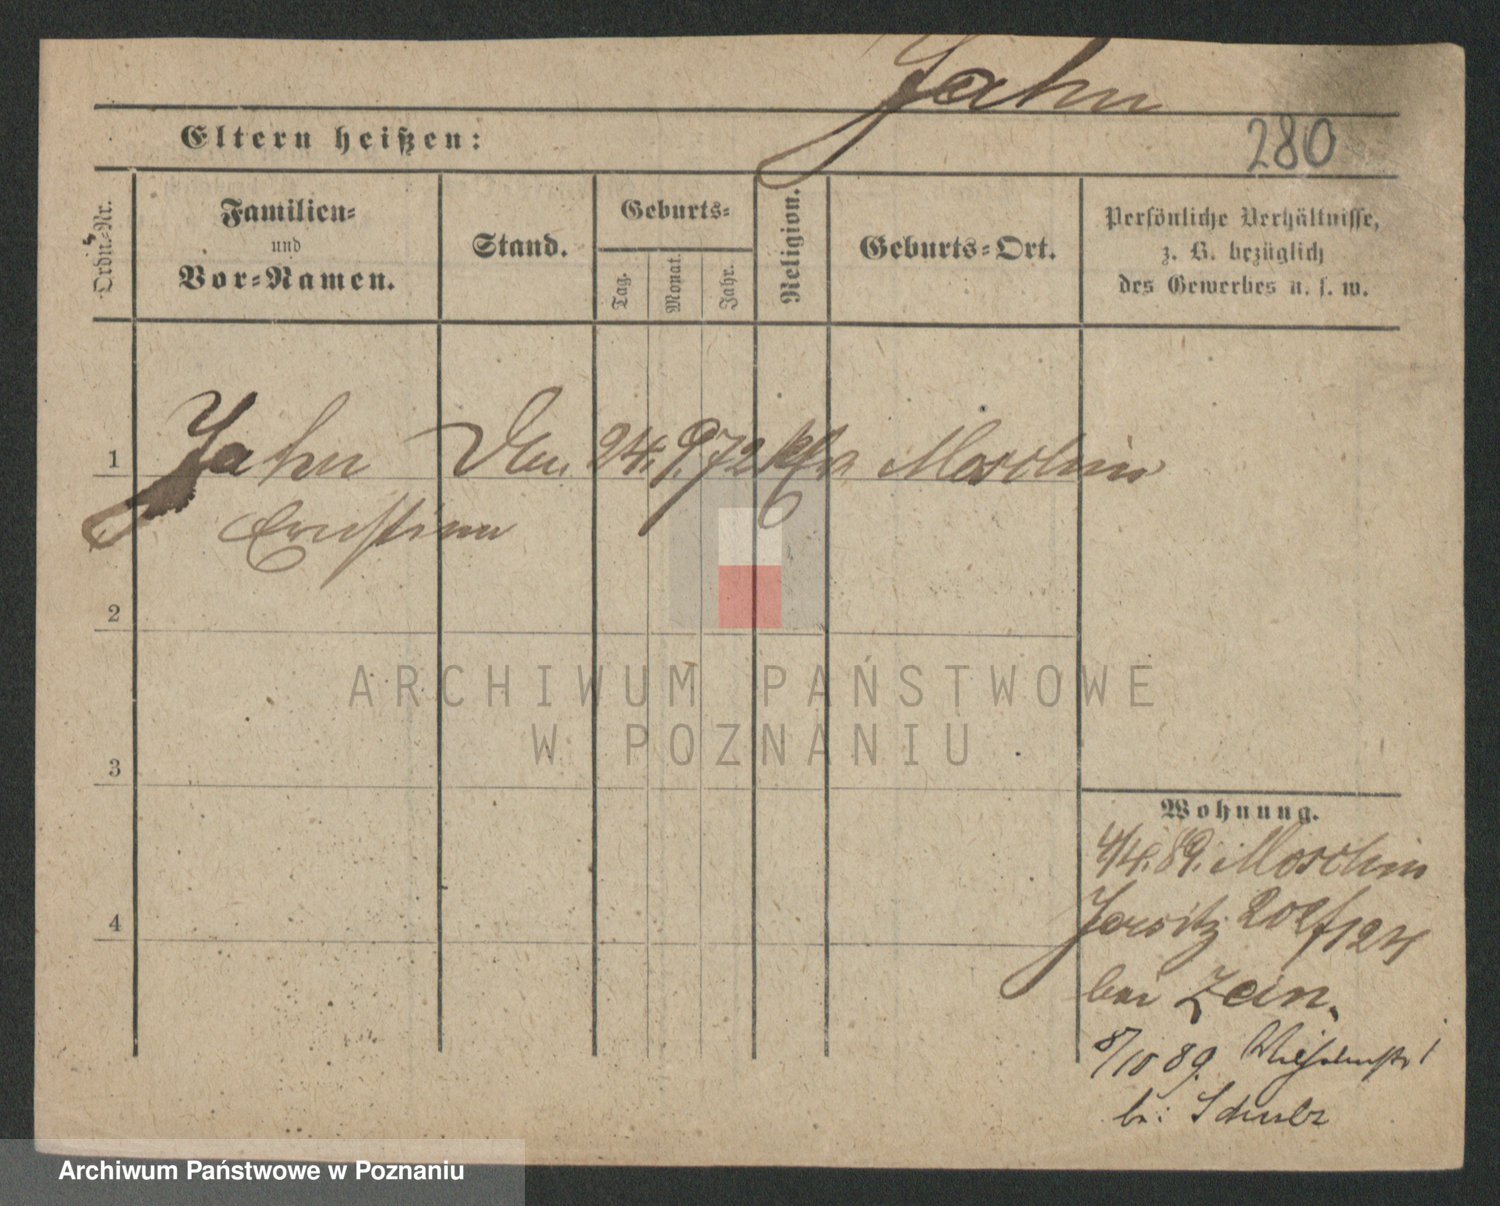 Jahn
280
Eltern heißen:
Ordn.-Nr.
Familien-
und
Vor-Namen.
Stand.
Geburts-
Tag.
Monat.
Jahr.
Religion.
Geburts-Ort.
Persönliche Verhältnisse,
z. B. bezüglich
des Gewerbes u. s. w.
1
Jahn 24. 9. 72 Moschin
Ernstine
2
3
4
ARCHIWUM PAŃSTWOWE
W POZNANIU
Wohnung.
4/4. 89. Moschin
Jersitz 124
bei Zein.
8/10 89. Wilhelmstr 1
b: Schulz
Archiwum Państwowe w Poznaniu